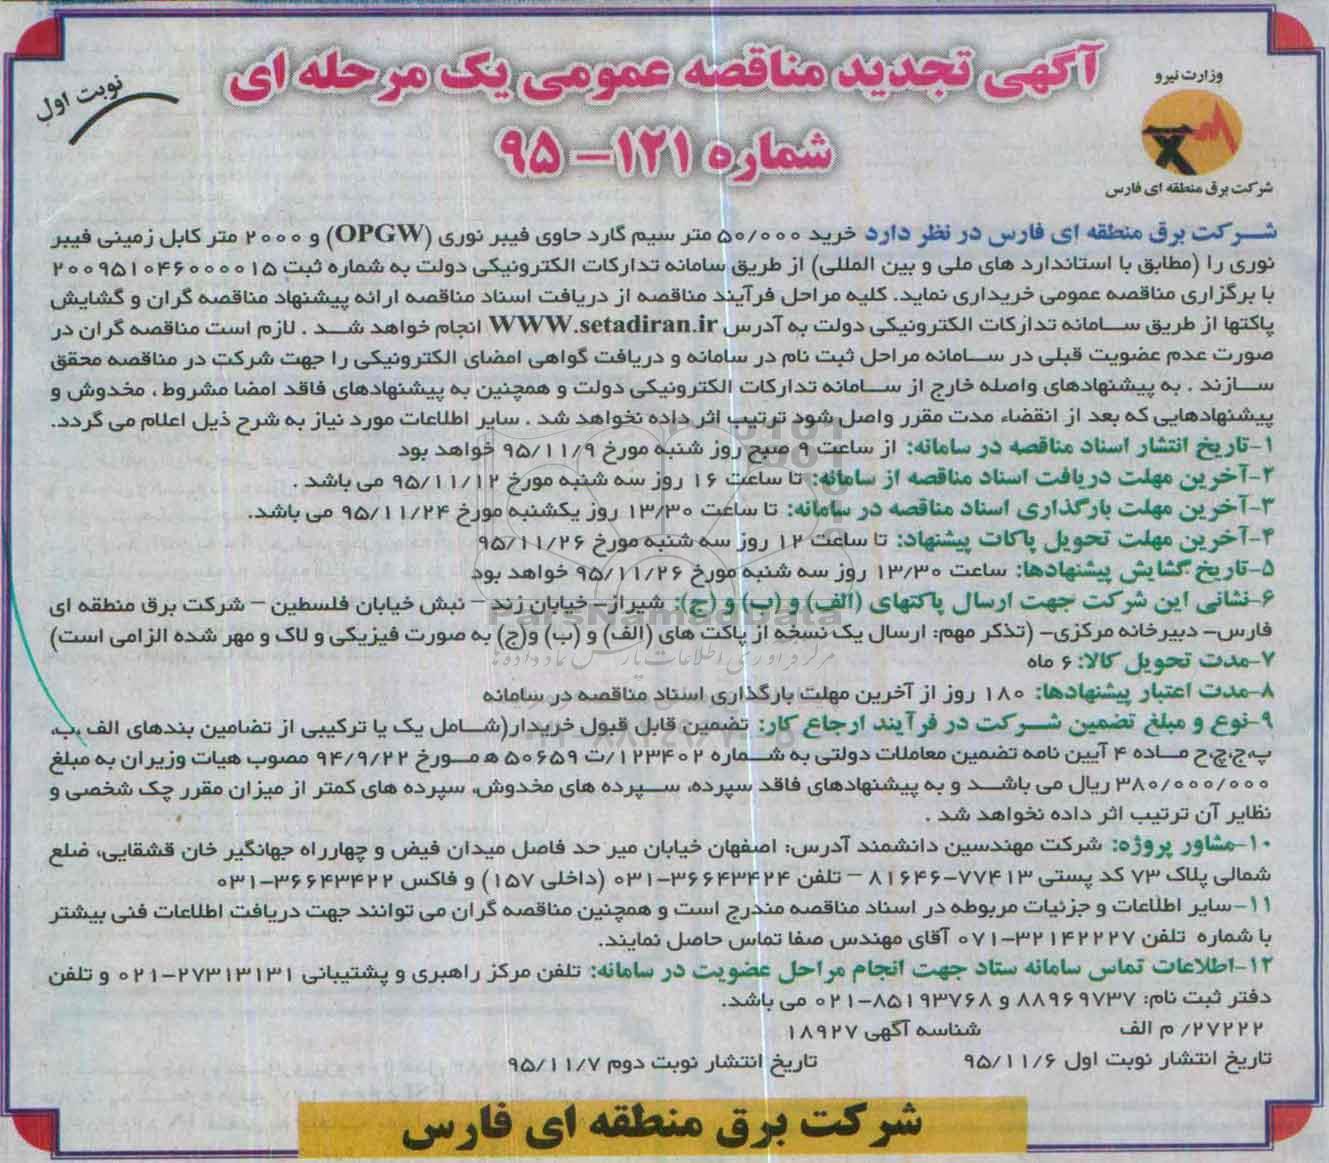 آگهی تجدید مناقصه عمومی یک مرحله ای
شماره ۱۲۱- ۹۵
نوبت اول
وزارت نیرو
شرکت برق منطقه ای فارس
شرکت برق منطقه ای فارس در نظر دارد خرید ۵۰/۰۰۰ متر سیم گارد حاوی فیبر نوری (OPGW) و ۲۰۰۰ متر کابل زمینی فیبر
نوری را (مطابق با استاندارد های ملی و بین المللی) از طریق سامانه تدارکات الکترونیکی دولت به شماره ثبت ۲۰۰۹۵۱۰۴۶۰۰۰۰۱۵
با برگزاری مناقصه عمومی خریداری نماید. کلیه مراحل فرآیند مناقصه از دریافت اسناد مناقصه ارائه پیشنهاد مناقصه گران و گشایش
پاکتها از طریق سامانه تدارکات الکترونیکی دولت به آدرس WWW.setadiran.ir انجام خواهد شد . لازم است مناقصه گران در
صورت عدم عضویت قبلی در سامانه مراحل ثبت نام در سامانه و دریافت گواهی امضای الکترونیکی را جهت شرکت در مناقصه محقق
سازند . به پیشنهادهای واصله خارج از سامانه تدارکات الکترونیکی دولت و همچنین به پیشنهادهای فاقد امضا مشروط ، مخدوش و
پیشنهادهایی که بعد از انقضاء مدت مقرر واصل شود ترتیب اثر داده نخواهد شد . سایر اطلاعات مورد نیاز به شرح ذیل اعلام می گردد.
۱-تاریخ انتشار اسناد مناقصه در سامانه: از ساعت ۹ صبح روز شنبه مورخ ۹۵/۱۱/۹ خواهد بود
۲-آخرین مهلت دریافت اسناد مناقصه از سامانه: تا ساعت ۱۶ روز سه شنبه مورخ ۹۵/۱۱/۱۲ می باشد .
۳-آخرین مهلت بارگذاری اسناد مناقصه در سامانه: تا ساعت ۱۳/۳۰ روز یکشنبه مورخ ۹۵/۱۱/۲۴ می باشد.
۴-آخرین مهلت تحویل پاکات پیشنهاد: تا ساعت ۱۲ روز سه شنبه مورخ ۹۵/۱۱/۲۶
۵-تاریخ گشایش پیشنهادها: ساعت ۱۳/۳۰ روز سه شنبه مورخ ۹۵/۱۱/۲۶ خواهد بود
۶-نشانی این شرکت جهت ارسال پاکتهای (الف) و (ب) و (ج): شیراز- خیابان زند - نبش خیابان فلسطین - شرکت برق منطقه ای
فارس- دبیرخانه مرکزی- (تذکر مهم: ارسال یک نسخه از پاکت های (الف) و (ب) و(ج) به صورت فیزیکی و لاک و مهر شده الزامی است)
۷-مدت تحویل کالا: ۶ ماه
۸-مدت اعتبار پیشنهادها: ۱۸۰ روز از آخرین مهلت بارگذاری اسناد مناقصه در سامانه
۹-نوع و مبلغ تضمین شرکت در فرآیند ارجاع کار: تضمین قابل قبول خریدار(شامل یک یا ترکیبی از تضامین بندهای الف ،ب،
پ،ج،چ،ح ماده ۴ آیین نامه تضمین معاملات دولتی به شماره ۱۲۳۴۰۲/ت ۵۰۶۵۹ ه مورخ ۹۴/۹/۲۲ مصوب هیات وزیران به مبلغ
۳۸۰/۰۰۰/۰۰۰ ریال می باشد و به پیشنهادهای فاقد سپرده، سپرده های مخدوش، سپرده های کمتر از میزان مقرر چک شخصی و
نظایر آن ترتیب اثر داده نخواهد شد .
۱۰-مشاور پروژه: شرکت مهندسین دانشمند آدرس: اصفهان خیابان میر حد فاصل میدان فیض و چهارراه جهانگیر خان قشقایی، ضلع
شمالی پلاک ۷۳ کد پستی ۷۷۴۱۳-۸۱۶۴۶ - تلفن ۳۶۶۴۳۴۲۴-۰۳۱ (داخلی ۱۵۷) و فاکس ۳۶۶۴۳۴۲۲-۰۳۱
۱۱-سایر اطلاعات و جزئیات مربوطه در اسناد مناقصه مندرج است و همچنین مناقصه گران می توانند جهت دریافت اطلاعات فنی بیشتر
با شماره تلفن ۳۲۱۴۲۲۲۷-۰۷۱ آقای مهندس صفا تماس حاصل نمایند.
۱۲-اطلاعات تماس سامانه ستاد جهت انجام مراحل عضویت در سامانه: تلفن مرکز راهبری و پشتیبانی ۲۷۳۱۳۱۳۱-۰۲۱ و تلفن
دفتر ثبت نام: ۸۸۹۶۹۷۳۷ و ۸۵۱۹۳۷۶۸-۰۲۱ می باشد.
۲۷۲۲۲/ م الف شناسه آگهی ۱۸۹۲۷
تاریخ انتشار نوبت اول ۹۵/۱۱/۶ تاریخ انتشار نوبت دوم ۹۵/۱۱/۷
شرکت برق منطقه ای فارس
ParsNamadData